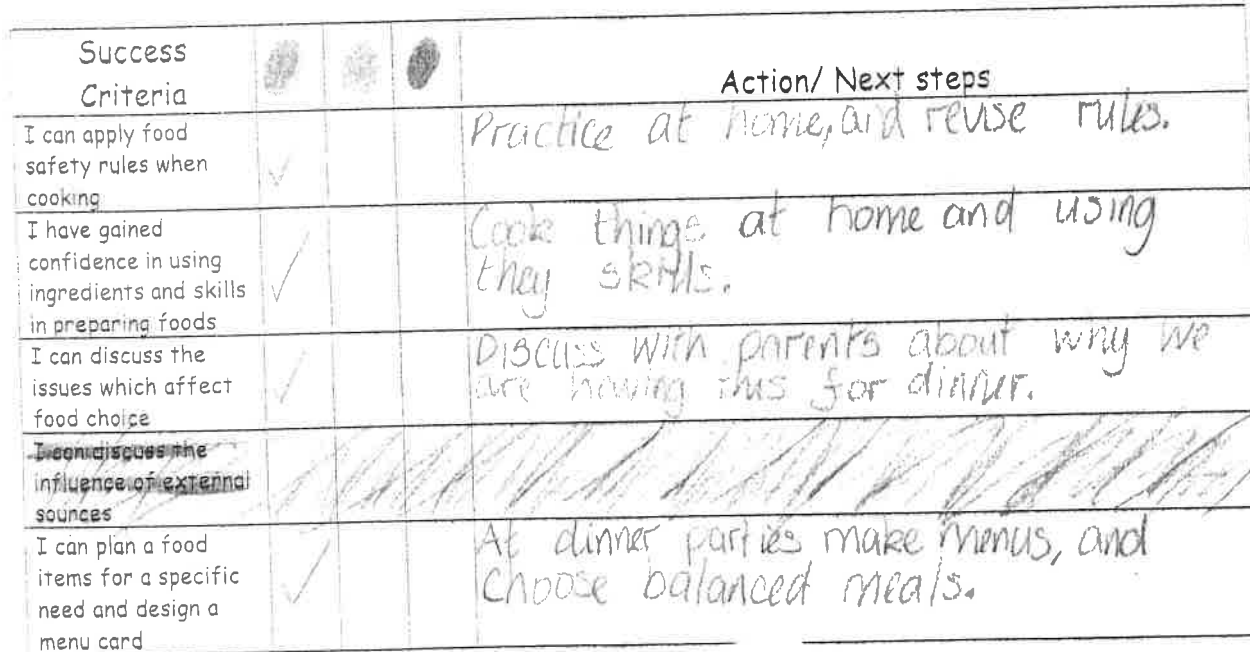 Success
Criteria
Action/ Next steps
I can apply food
safety rules when
cooking
Practice at home, and revise rules.
I have gained
confidence in using
ingredients and skills
in preparing foods
Cook things at home and using
they skills.
I can discuss the
issues which affect
food choice
Discuss with parents about why we
are having this for dinner.
I can discuss the
influence of external
sources
I can plan a food
items for a specific
need and design a
menu card
At dinner parties make menus, and
choose balanced meals.